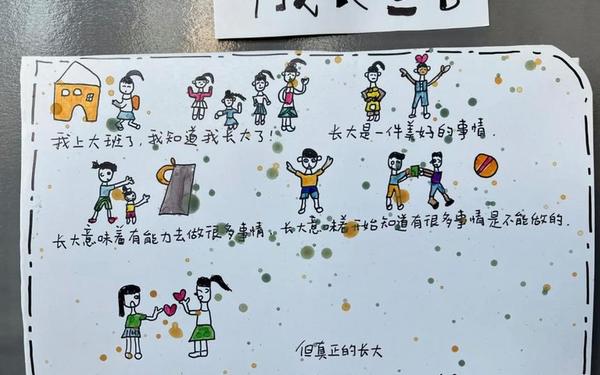 我上大班了,我知道我长大了!
长大是一件美好的事情.
长大意味着有能力去做很多事情.
长大意味着开始知道有很多事情是不能做的.
但真正的长大